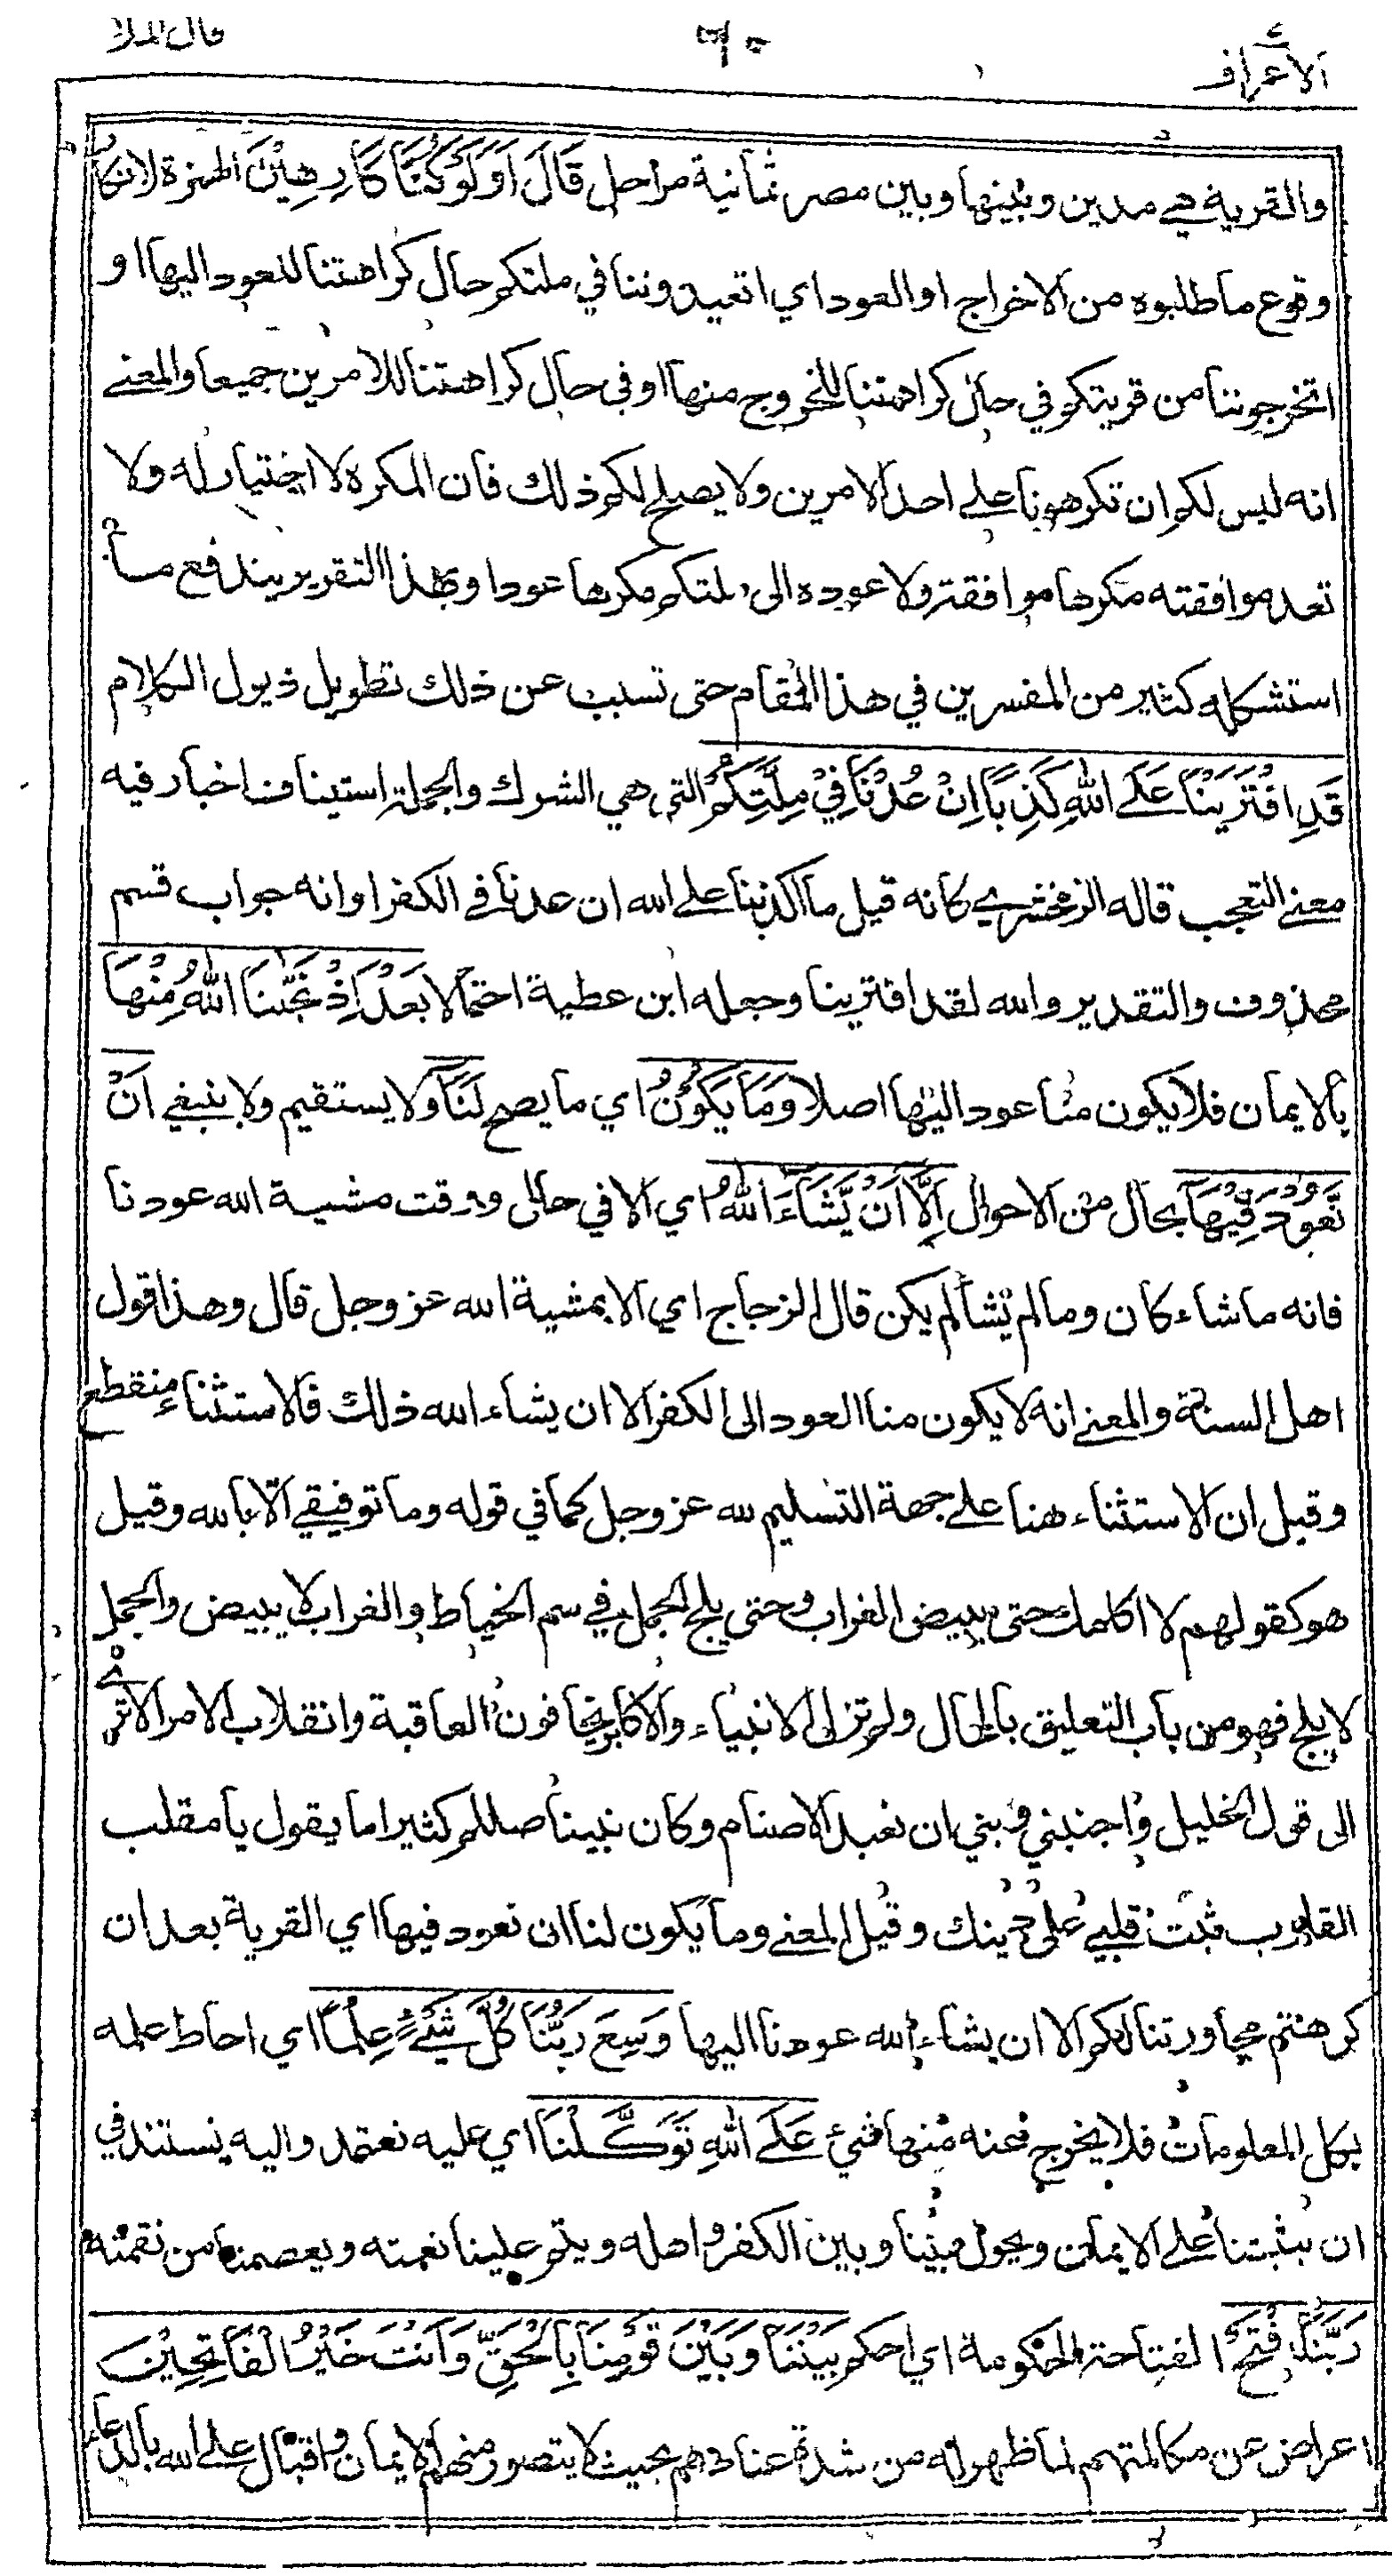 الاعراف
٦٠
قال الملأ
والقرية هي مدين وبينها وبين مصر ثمانية مراحل قَالَ اَوَلَوْ كُنَّا كَارِهِيْنَ الهمزة لانكار
وقوع ما طلبوه من الاخراج او العود اي اتعيدوننا في ملتكم حال كراهتنا للعود اليها او
اتخرجوننا من قريتكم في حال كراهتنا للخروج منها او في حال كراهتنا للامرين جميعا والمعنى
انه ليس لكم ان تكرهونا على احد الامرين ولا يصلح لكم ذلك فان المكره لا اختيار له ولا
تعد موافقته مكرها موافقة ولا عوده الى ملتكم مكرها عودا وبهذا التقرير يندفع ما
استشكله كثير من المفسرين في هذا المقام حتى تسبب عن ذلك تطويل ذيول الكلام
قَدِ افْتَرَيْنَا عَلَى اللهِ كَذِبًا اِنْ عُدْنَا فِيْ مِلَّتِكُمْ التي هي الشرك والجملة استيناف اخبار فيه
معنى التعجب قاله الزمخشري كانه قيل ما اكذبنا على الله ان عدنا في الكفر او انه جواب قسم
محذوف والتقدير والله لقد افترينا وجعله ابن عطية احتمالا بَعْدَ اِذْ نَجّٰنَا اللهُ مِنْهَا
بالايمان فلا يكون منا عود اليها اصلا وَمَا يَكُوْنُ اي ما يصح لَنَا ولا يستقيم ولا ينبغي اَنْ
نَّعُوْدَ فِيْهَا بحال من الاحوال اِلَّا اَنْ يَّشَاءَ اللهُ اي الا في حال ووقت مشية الله عودنا
فانه ما شاء كان وما لم يشأ لم يكن قال الزجاج اي الا بمشية الله عز وجل قال وهذا قول
اهل السنة والمعنى انه لا يكون منا العود الى الكفر الا ان يشاء الله ذلك فالاستثناء منقطع
وقيل ان الاستثناء هنا على جهة التسليم لله عز وجل كما في قوله وما توفيقي الا بالله وقيل
هو كقولهم لا اكلمك حتى يبيض الغراب وحتى يلج الجمل في سم الخياط والغراب لا يبيض والجمل
لا يلج فهو من باب التعليق بالمحال ولم تزل الانبياء والاكابر يخافون العاقبة وانقلاب الامر الا ترى
الى قول الخليل واجنبني وبني ان نعبد الاصنام وكان نبينا صللم كثيرا ما يقول يا مقلب
القلوب ثبت قلبي على دينك وقيل المعنى وما يكون لنا ان نعود فيها اي القرية بعد ان
كرهتم مجاورتنا لكم الا ان يشاء الله عودنا اليها وَسِعَ رَبُّنَا كُلَّ شَيْءٍ عِلْمًا اي احاط علمه
بكل المعلومات فلا يخرج عنه منها شيء عَلَى اللهِ تَوَكَّلْنَا اي عليه نعتمد واليه نستند في
ان يثبتنا على الايمان ويحول بيننا وبين الكفر واهله ويتم علينا نعمته ويعصمنا من نقمته
رَبَّنَا افْتَحْ الفتاحة الحكومة اي احكم بَيْنَنَا وَبَيْنَ قَوْمِنَا بِالْحَقِّ وَاَنْتَ خَيْرُ الْفَاتِحِيْنَ
اعراض عن مكالمتهم لما ظهر له من شدة عنادهم بحيث لا يتصور منهم الايمان واقبال على الله بالدعاء